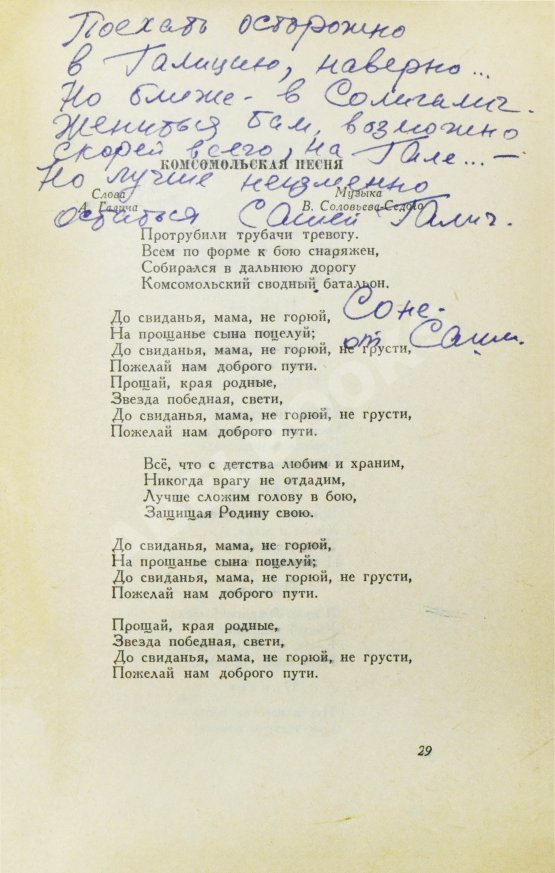 Поехать осторожно
в Галицию, наверно...
Но ближе - в Солигалич.
Жениться там, возможно
скорей всего, на Гале... -
КОМСОМОЛЬСКАЯ ПЕСНЯ
Но лучше неизменно
Слова
А. Галича
Музыка
В. Соловьева-Седого
остаться Сашей Галич.
Протрубили трубачи тревогу.
Всем по форме к бою снаряжен,
Собирался в дальнюю дорогу
Комсомольский сводный батальон.
Соне -
от Саши.
До свиданья, мама, не горюй,
На прощанье сына поцелуй;
До свиданья, мама, не горюй, не грусти,
Пожелай нам доброго пути.
Прощай, края родные,
Звезда победная, свети,
До свиданья, мама, не горюй, не грусти,
Пожелай нам доброго пути.
Всё, что с детства любим и храним,
Никогда врагу не отдадим,
Лучше сложим голову в бою,
Защищая Родину свою.
До свиданья, мама, не горюй,
На прощанье сына поцелуй;
До свиданья, мама, не горюй, не грусти,
Пожелай нам доброго пути.
Прощай, края родные,
Звезда победная, свети,
До свиданья, мама, не горюй, не грусти,
Пожелай нам доброго пути.
29